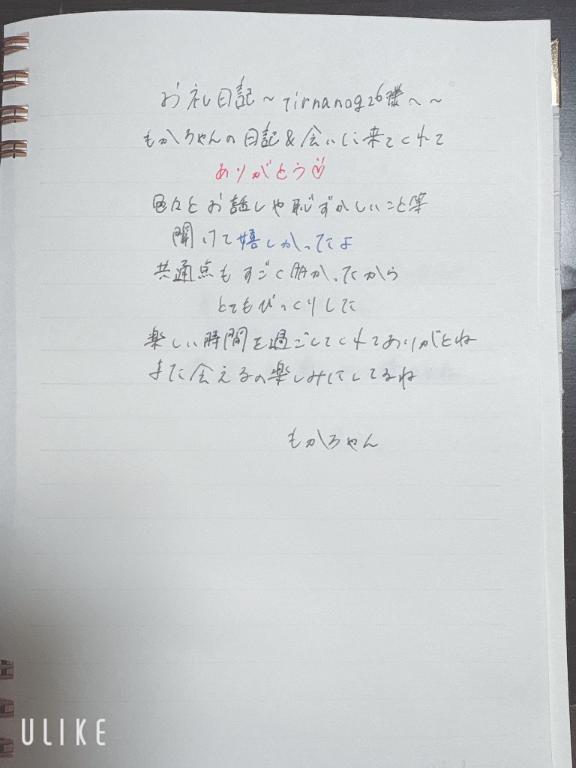 お礼日記～tirnanog26様へ～
もかちゃんの日記&会いに来てくれて
ありがとう♡
色々とお話しや恥ずかしいこと等
聞けて嬉しかったよ
共通点もすごく多かったから
とてもびっくりした
楽しい時間を過ごしてくれてありがとね
また会えるの楽しみにしてるね
もかちゃん
ULIKE